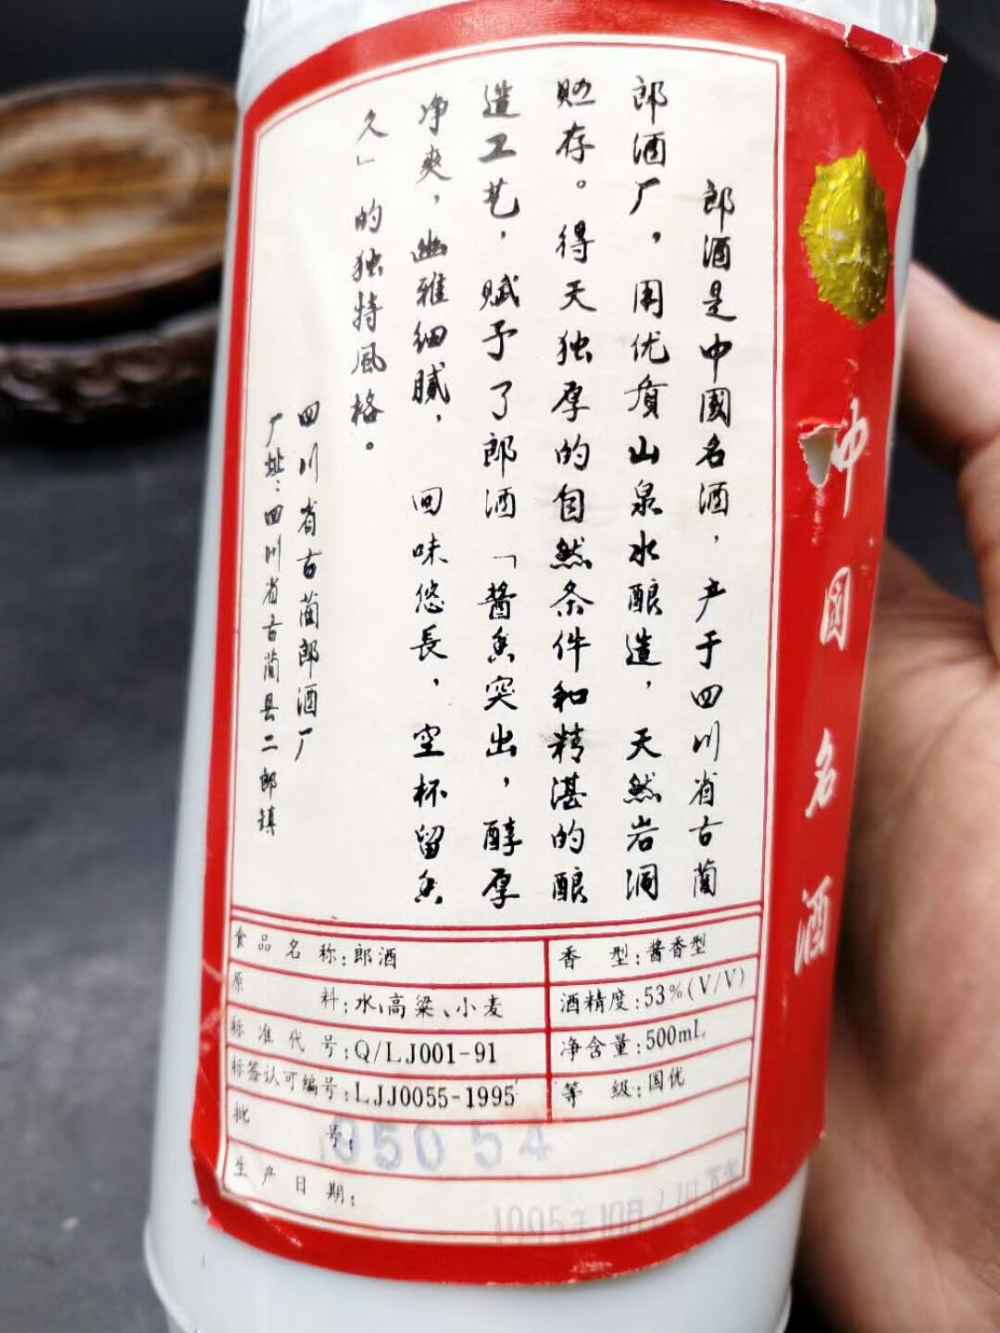 郎酒是中國名酒，产于四川省古蔺
郎酒厂，用优質山泉水酿造，天然岩洞
贮存。得天独厚的自然条件和精湛的酿
造工艺，赋予了郎酒「醬香突出，醇厚
净爽，幽雅细腻，回味悠長，空杯留香
久」的独特風格。
四川省古蔺郎酒厂
厂址：四川省古蔺县二郎镇
食品名称：郎酒
香型：酱香型
原料：水、高粱、小麦
酒精度：53%(V/V)
标准代号：Q/LJ001-91
净含量：500mL
标签认可编号：LJJ0055-1995
等级：国优
批号：
生产日期：
中国名酒